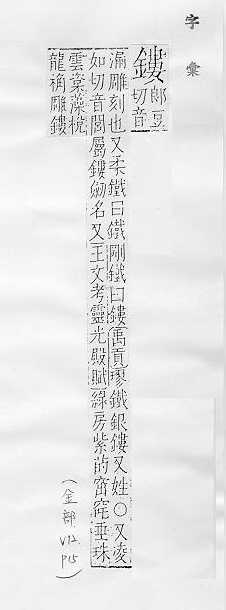 字彙
鏤
郎豆
切音
漏雕刻也又柔鐵曰鐵剛鐵曰鏤禹貢璆鐵銀鏤又姓○又凌
如切音閭屬鏤劒名又王文考靈光殿賦綠房紫的窋窊垂珠
雲楶藻梲
龍桷雕鏤
(金部
V12
P15)